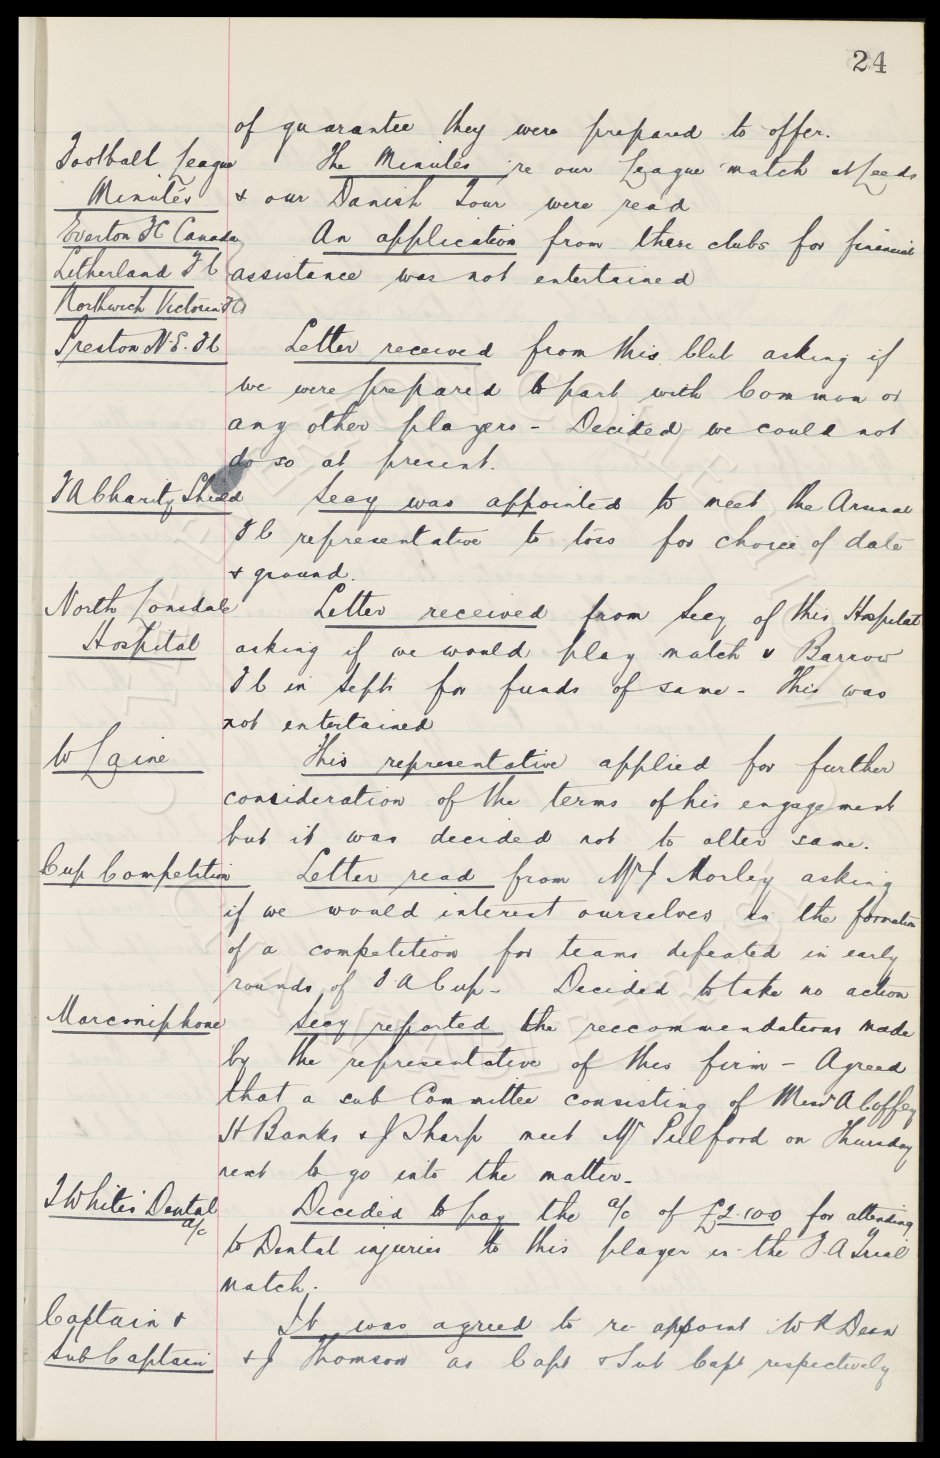 24
of guarantee they were prepared to offer.
Football League The Minutes re our League match at Leeds
Minutes & our Danish Tour were read
Everton FC Canada An application from these clubs for financial
Litherland F C assistance was not entertained
Northwich Victoria FC
Preston N.E. F C Letter received from this Club asking if
we were prepared to part with Common or
any other players - Decided we could not
do so at present.
F A Charity Shield Secy was appointed to meet the Arsenal
F C representative to toss for choice of date
& ground.
North Lonsdale Letter received from Secy of this Hospital
Hospital asking if we would play match v Barrow
F C in Septr for funds of same - This was
not entertained
W Laine This representative applied for further
consideration of the terms of his engagement
but it was decided not to alter same.
Cup Competition Letter read from Mr J Morley asking
if we would interest ourselves in the formation
of a competition for teams defeated in early
rounds of F.A Cup - Decided to take no action
Marconiphone Secy reported the reccommendations made
by the representative of this firm - Agreed
that a sub Committee consisting of Messrs A Coffey
H Banks & J Sharp meet Mr Pulford on Thursday
next to go into the matter -
T White's Dental Decided to pay the a/c of £2.10.0 for attending
a/c to Dental injuries to this player in the F.A Trial
match.
Captain & It was agreed to re-appoint W R Dean
Sub Captain & J Thomson as Capt & Sub Capt respectively